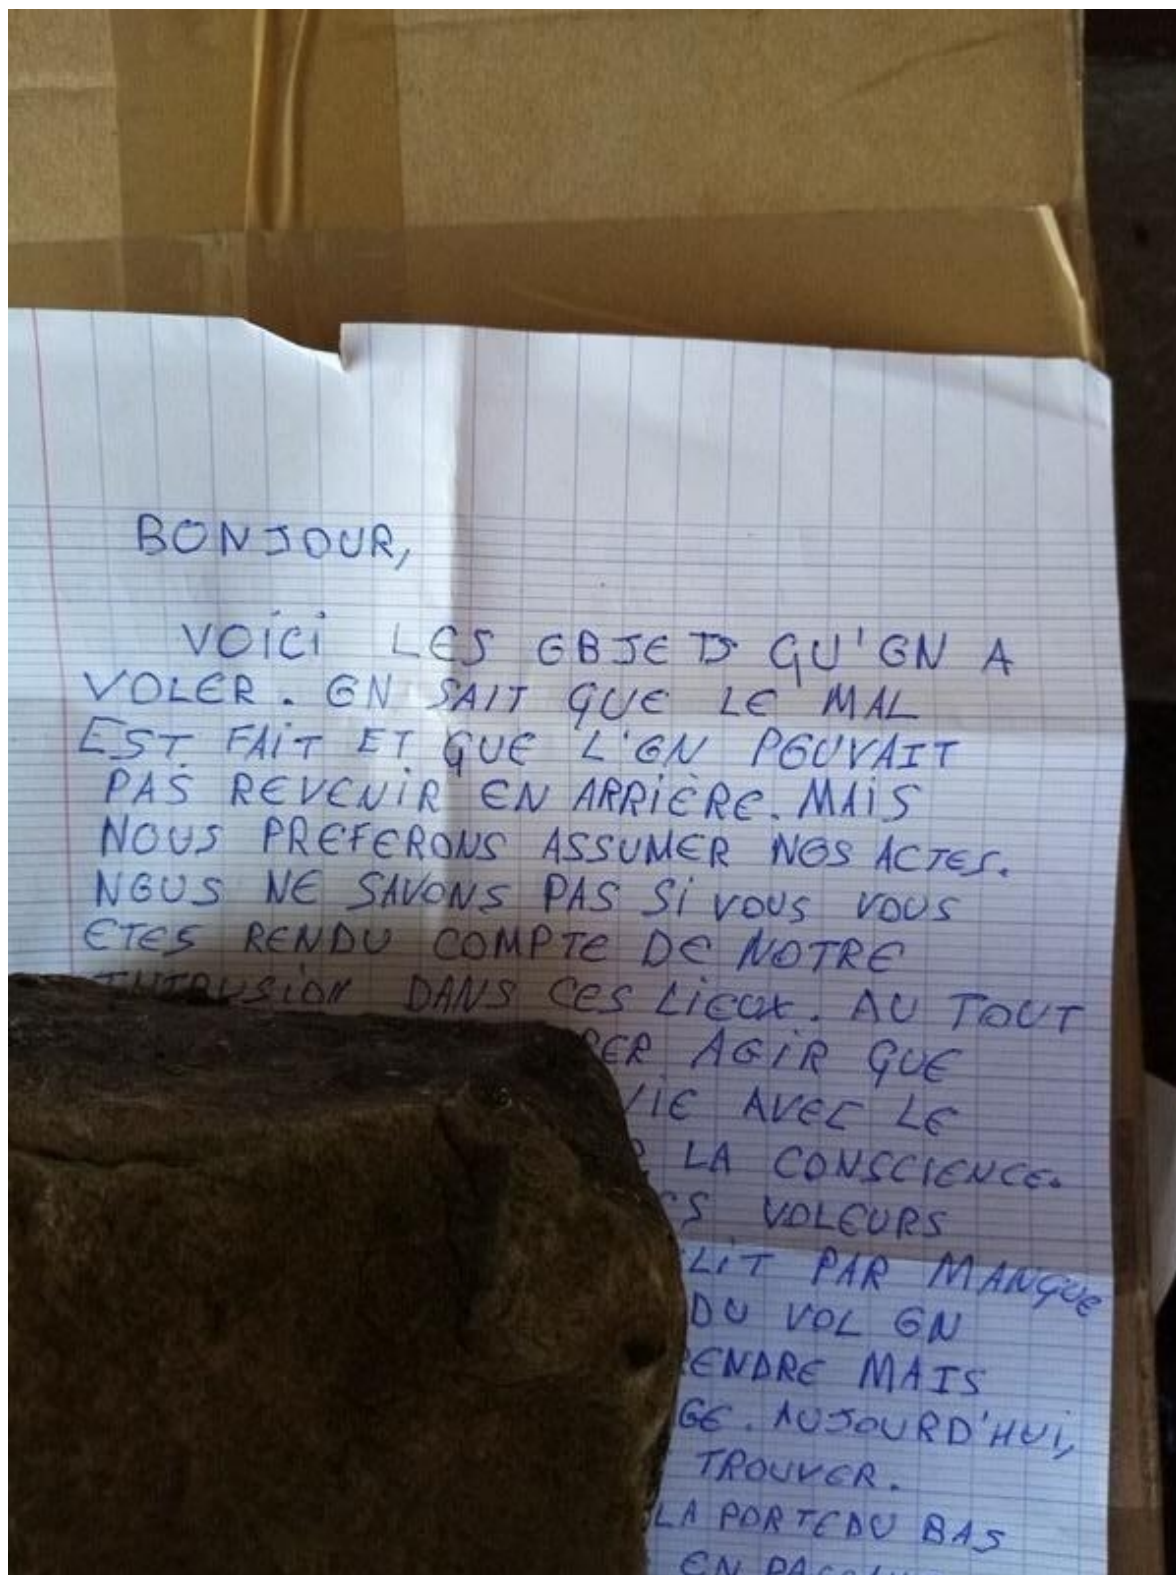 BONJOUR,
VOICI LES OBJETS QU'ON A
VOLER. ON SAIT QUE LE MAL
EST FAIT ET QUE L'ON POUVAIT
PAS REVENIR EN ARRIÈRE. MAIS
NOUS PREFERONS ASSUMER NOS ACTES.
NOUS NE SAVONS PAS SI VOUS VOUS
ETES RENDU COMPTE DE NOTRE
INTRUSION DANS CES LIEUX. AU TOUT
AGIR QUE
AVEC LE
LA CONSCIENCE.
VOLEURS
PAR MANQUE
DU VOL ON
MAIS
AUJOURD'HUI,
TROUVER.
LA PORTE DU BAS
EN